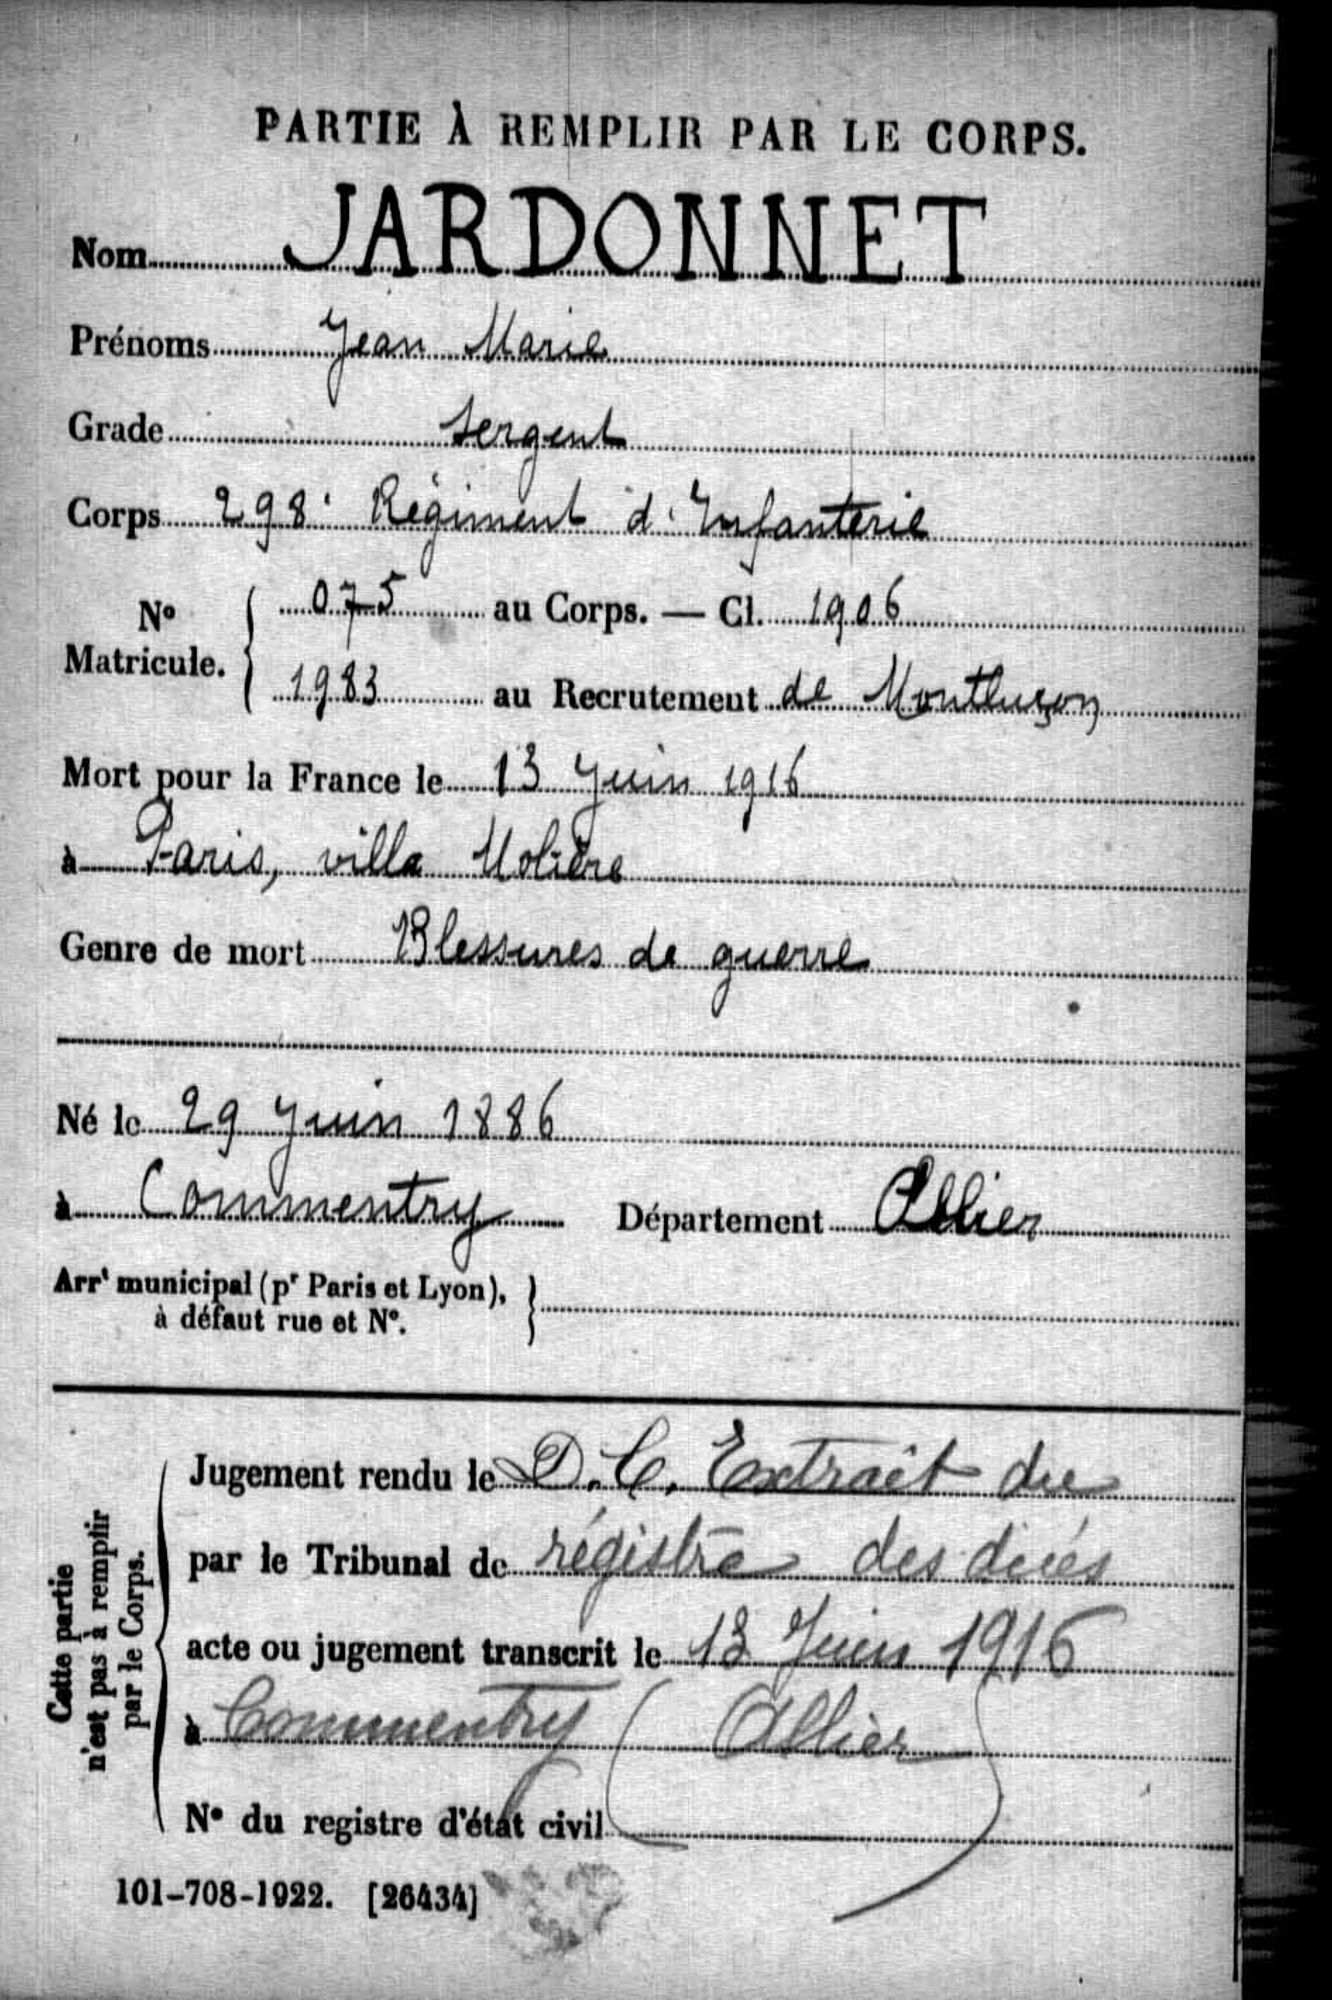 PARTIE À REMPLIR PAR LE CORPS.
Nom JARDONNET
Prénoms Jean Marie
Grade Sergent
Corps 298e Régiment d'Infanterie
No Matricule. { 075 au Corps. — Cl. 1906
1983 au Recrutement de Montluçon
Mort pour la France le 13 Juin 1916
à Paris, villa Molière
Genre de mort Blessures de guerre
Né le 29 Juin 1886
à Commentry Département Allier
Arrt municipal (pr Paris et Lyon), }
à défaut rue et No.
Cette partie
n'est pas à remplir
par le Corps.
Jugement rendu le D.C. Extrait du
par le Tribunal de régistre des décés
acte ou jugement transcrit le 13 Juin 1916
à Commentry (Allier)
No du registre d'état civil
101-708-1922. [26434]